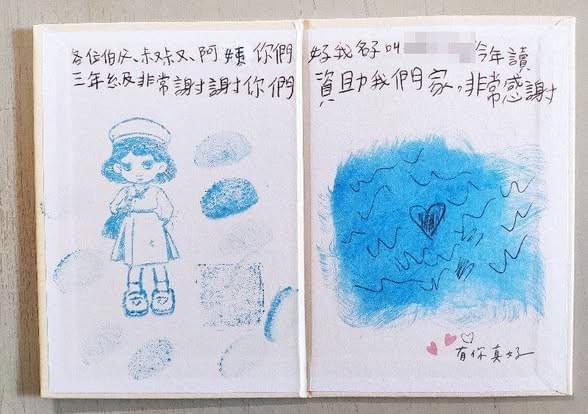 各位伯父、叔叔、阿姨你們好我名字叫今年讀
三年級非常謝謝你們資助我們家。非常感謝
有你真好